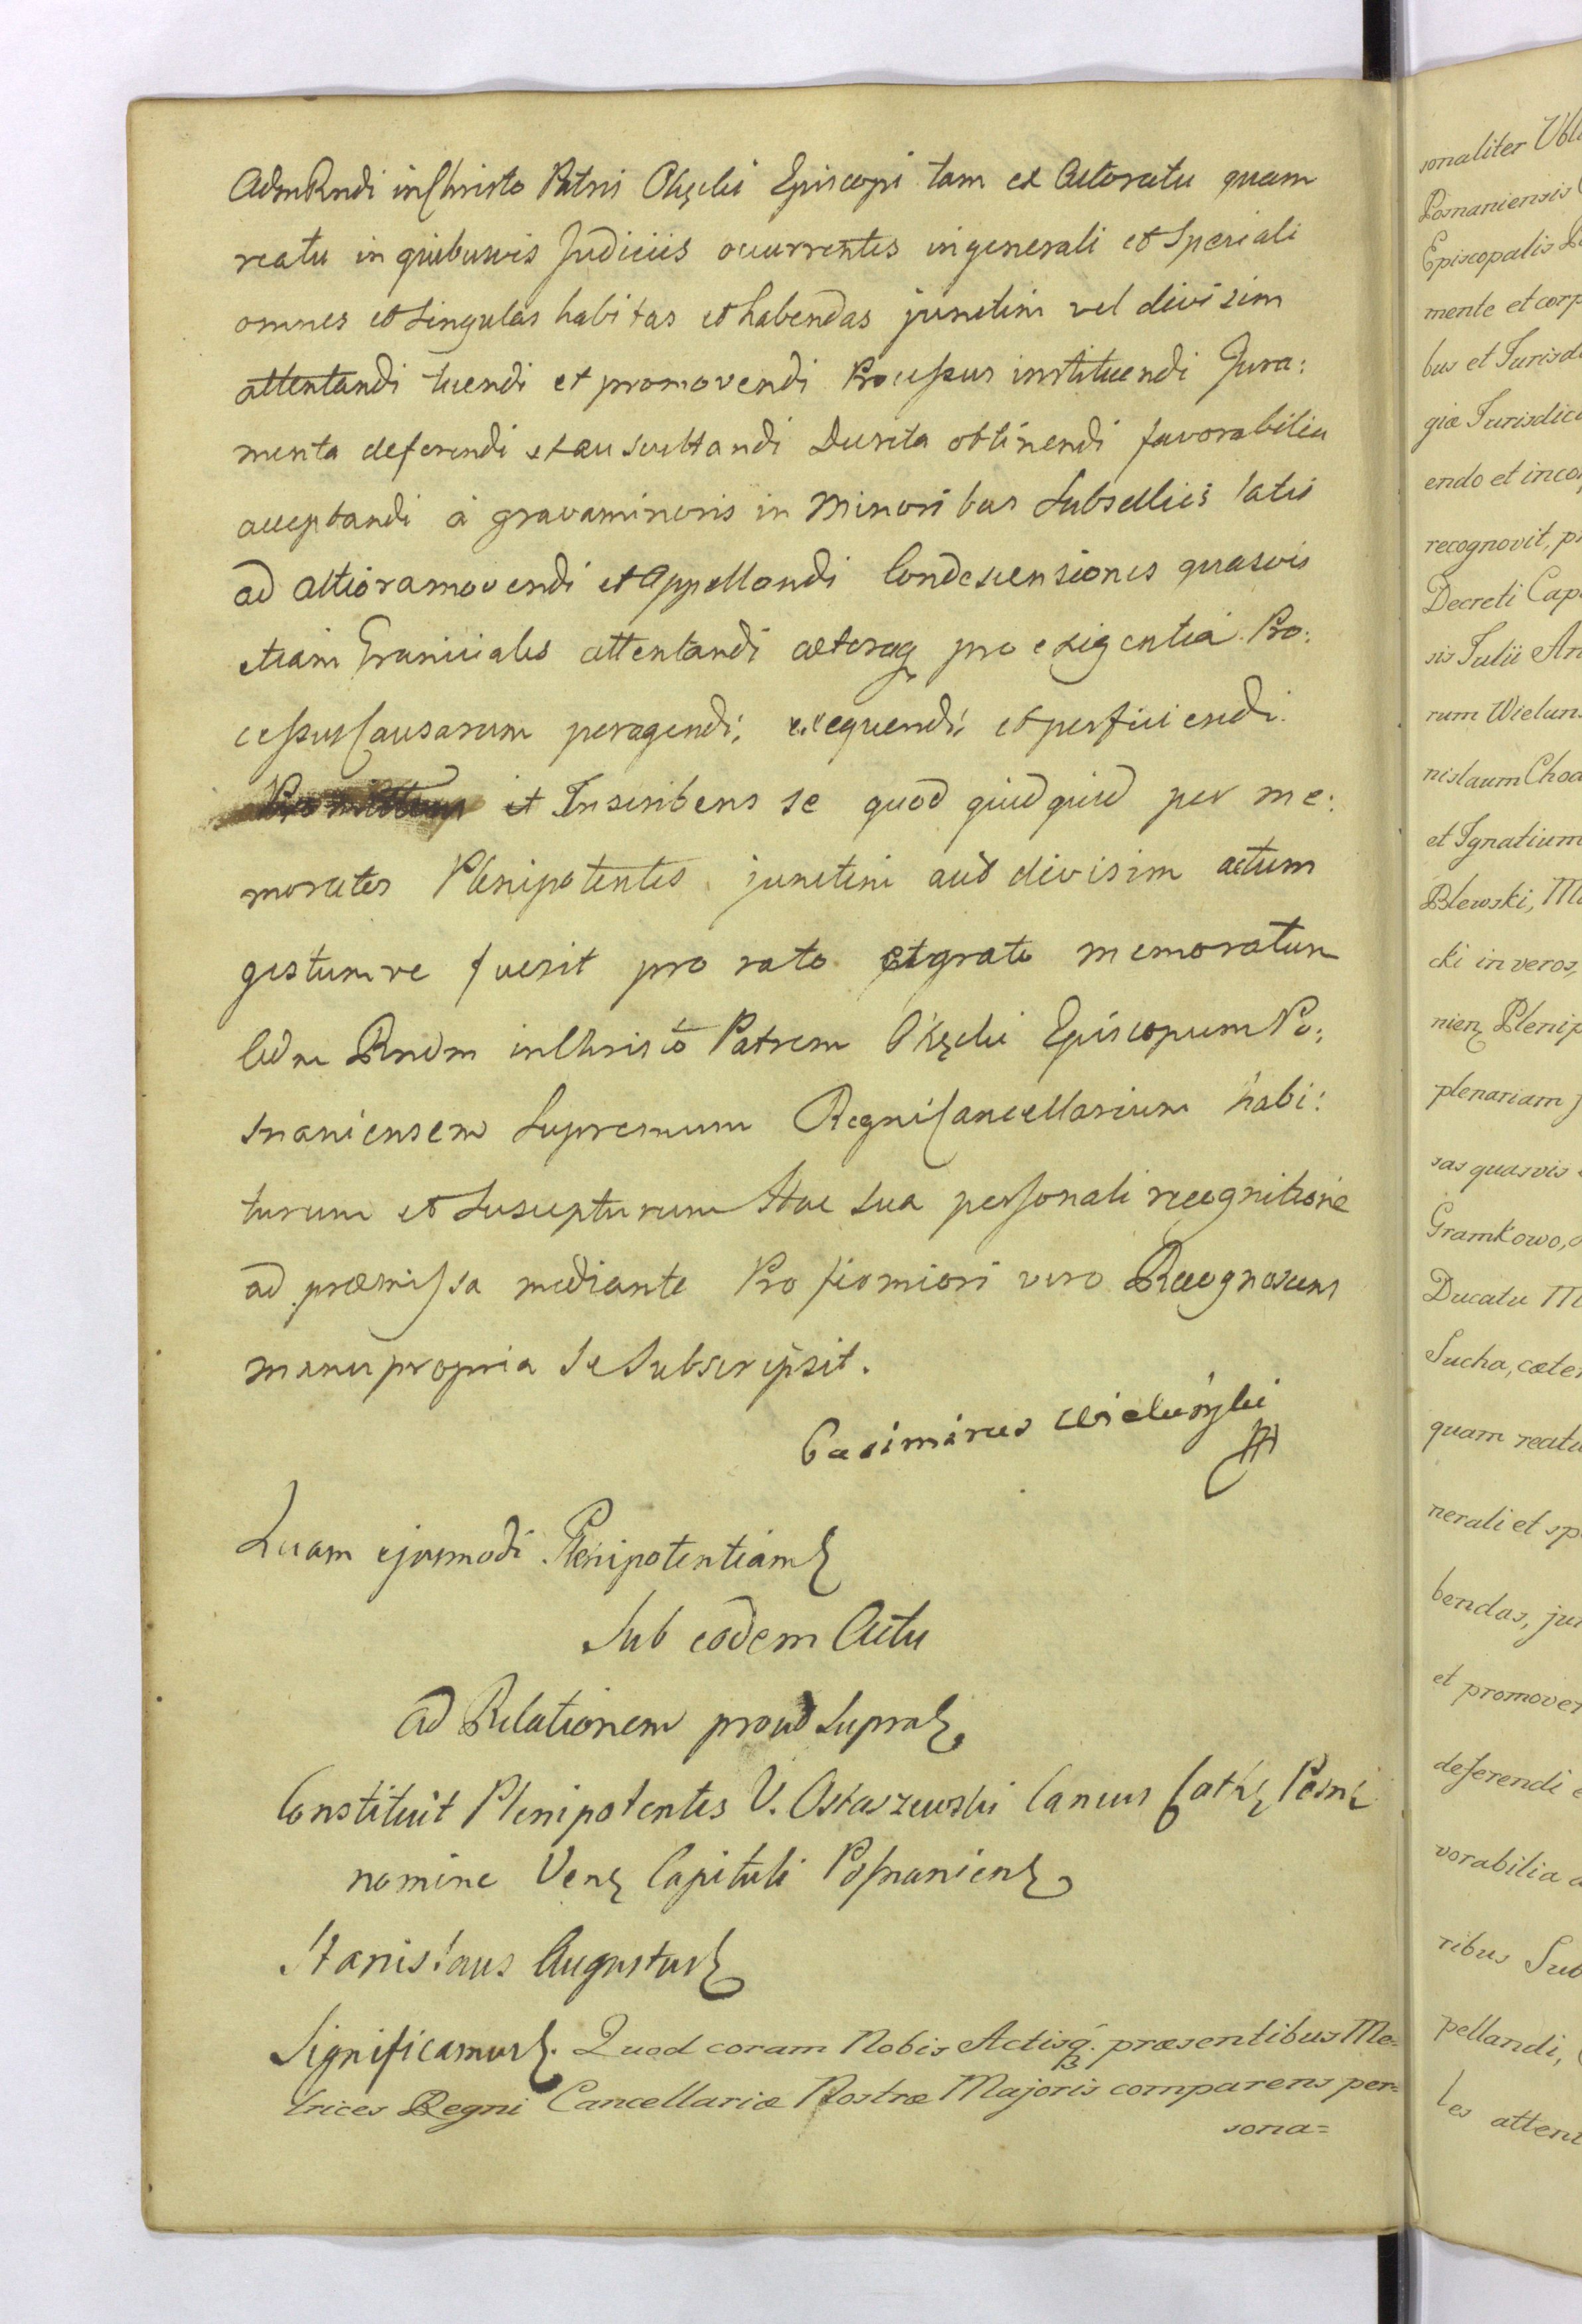 AdmRndi inChristo Patris Okęcki Episcopi tam ex Actoratu quam
reatu in quibusvis Judiciis occurrentes ingenerali et Speciali
omnes et Singulas habitas et habendas junctim vel divisim
attentandi tuendi et promovendi Processus instituendi Jura:
menta deferendi et auscultandi Decreta obtinendi favorabilia
acceptandi à gravaminoris in Minoribus Subselliis latis
ad altioramovendi et Appellandi Condescensiones quasvis
etiam Graniciales attentandi cæteraq pro exigentia Pro:
cessus Causarum peragendi, exequendi et perficiendi.
Promittens et Inscribens se quod quidquid per me:
moratos Plenipotentes junctim aut divisim actum
gestumve fuerit pro rato et grato memoratum
Adm Rndm inChristo Patrem Okęcki Episcopum Po:
snaniensem Supremum Regni Cancellarium habi:
turum et Suscepturum Hac Sua personali recognitione
ad præmissa mediante Pro firmiori vero Recognoscens
manu propria Se Subscripsit.
Casimirus Wieluński
Quam ejusmodi Plenipotentiam
Sub eodem Actu
Ad Relationem prout Supra
Constituit Plenipotentes V. Ostaszewski Cancus Cath Posn
nomine Ven Capituli Posnanien
Stanislaus Augustus
Significamus. Quod coram Nobis Actisq. præsentibus Me=
trices Regni Cancellariæ Nostræ Majoris comparens per=
sona=
sonaliter
Posnaniensis
Episcopalis
mente et corp
bus et Jurisd
giæ Jurisdic
endo et inco
recognovit, p
Decreti Cap
sis Julii An
rum Wielun
nislaum Choa
et Ignatium
Blewski, M
cki in veros,
nien Plenip
plenariam
sas quasvis
Gramkowo,
Ducatu M
Sucha, cæte
quam reatu
nerali et sp
bendas, jun
et promover
deferendi e
vorabilia a
ribus Sub
pellandi,
les attent